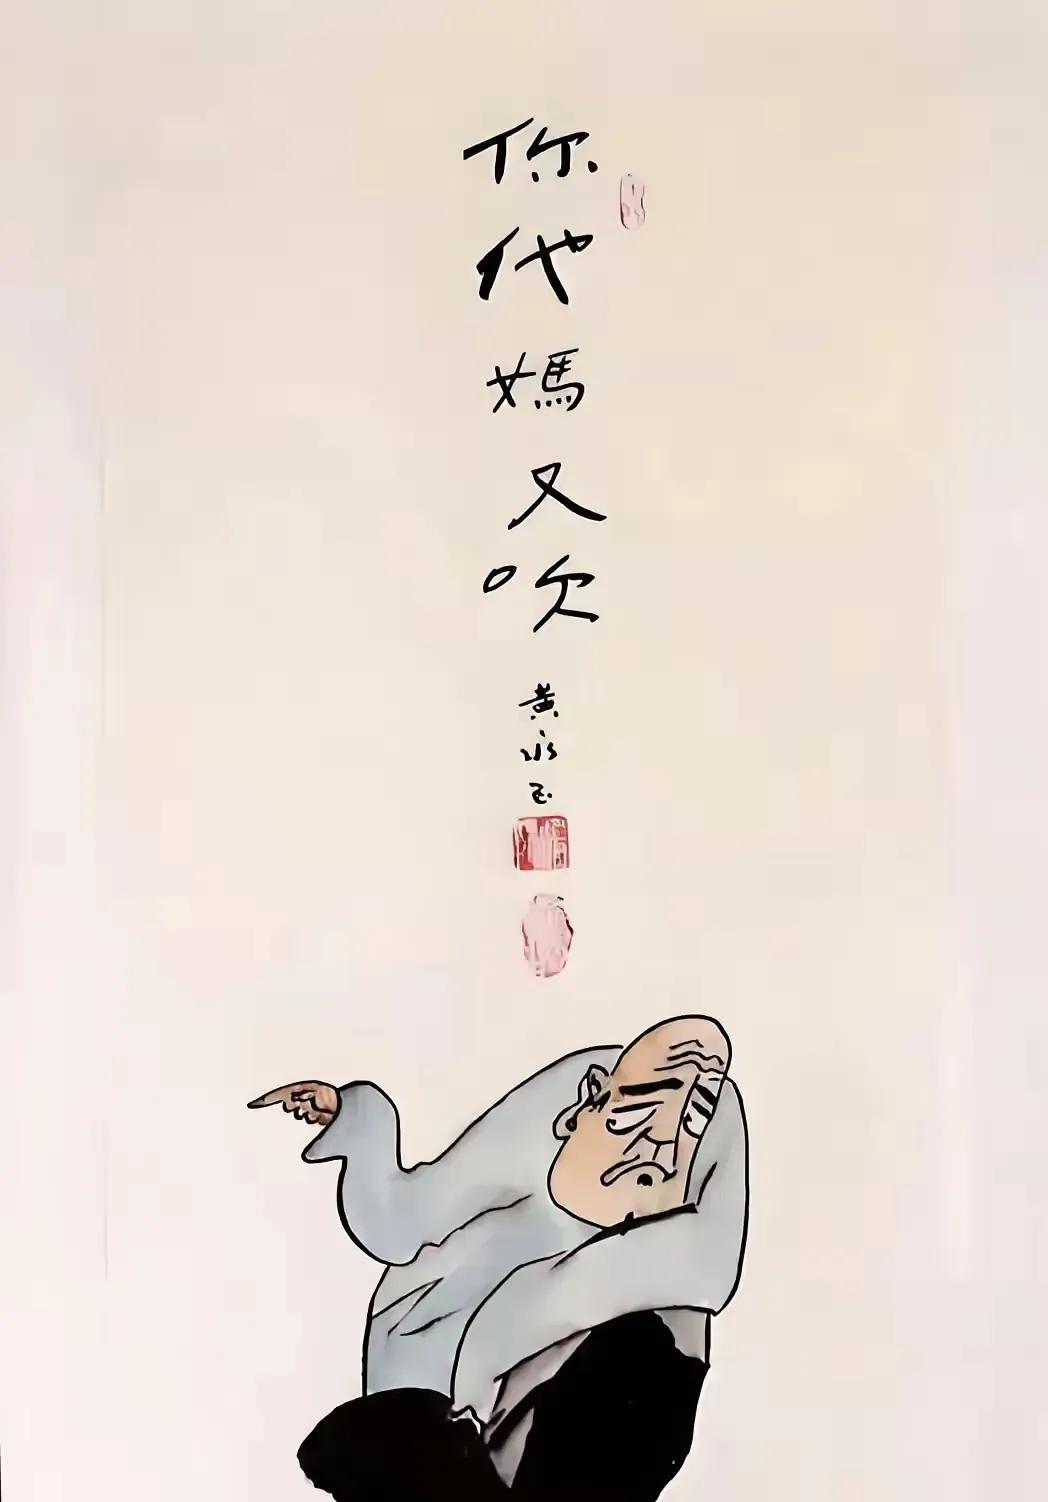 你代媽又吹
黄永玉